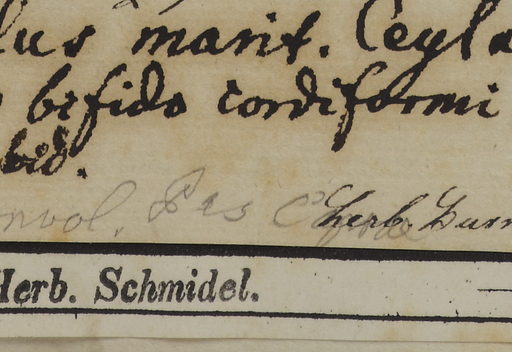 lus marit. Ceyla
bifido cordiformi
bid.
nvol. Pes C
herb. Burm
Herb. Schmidel.